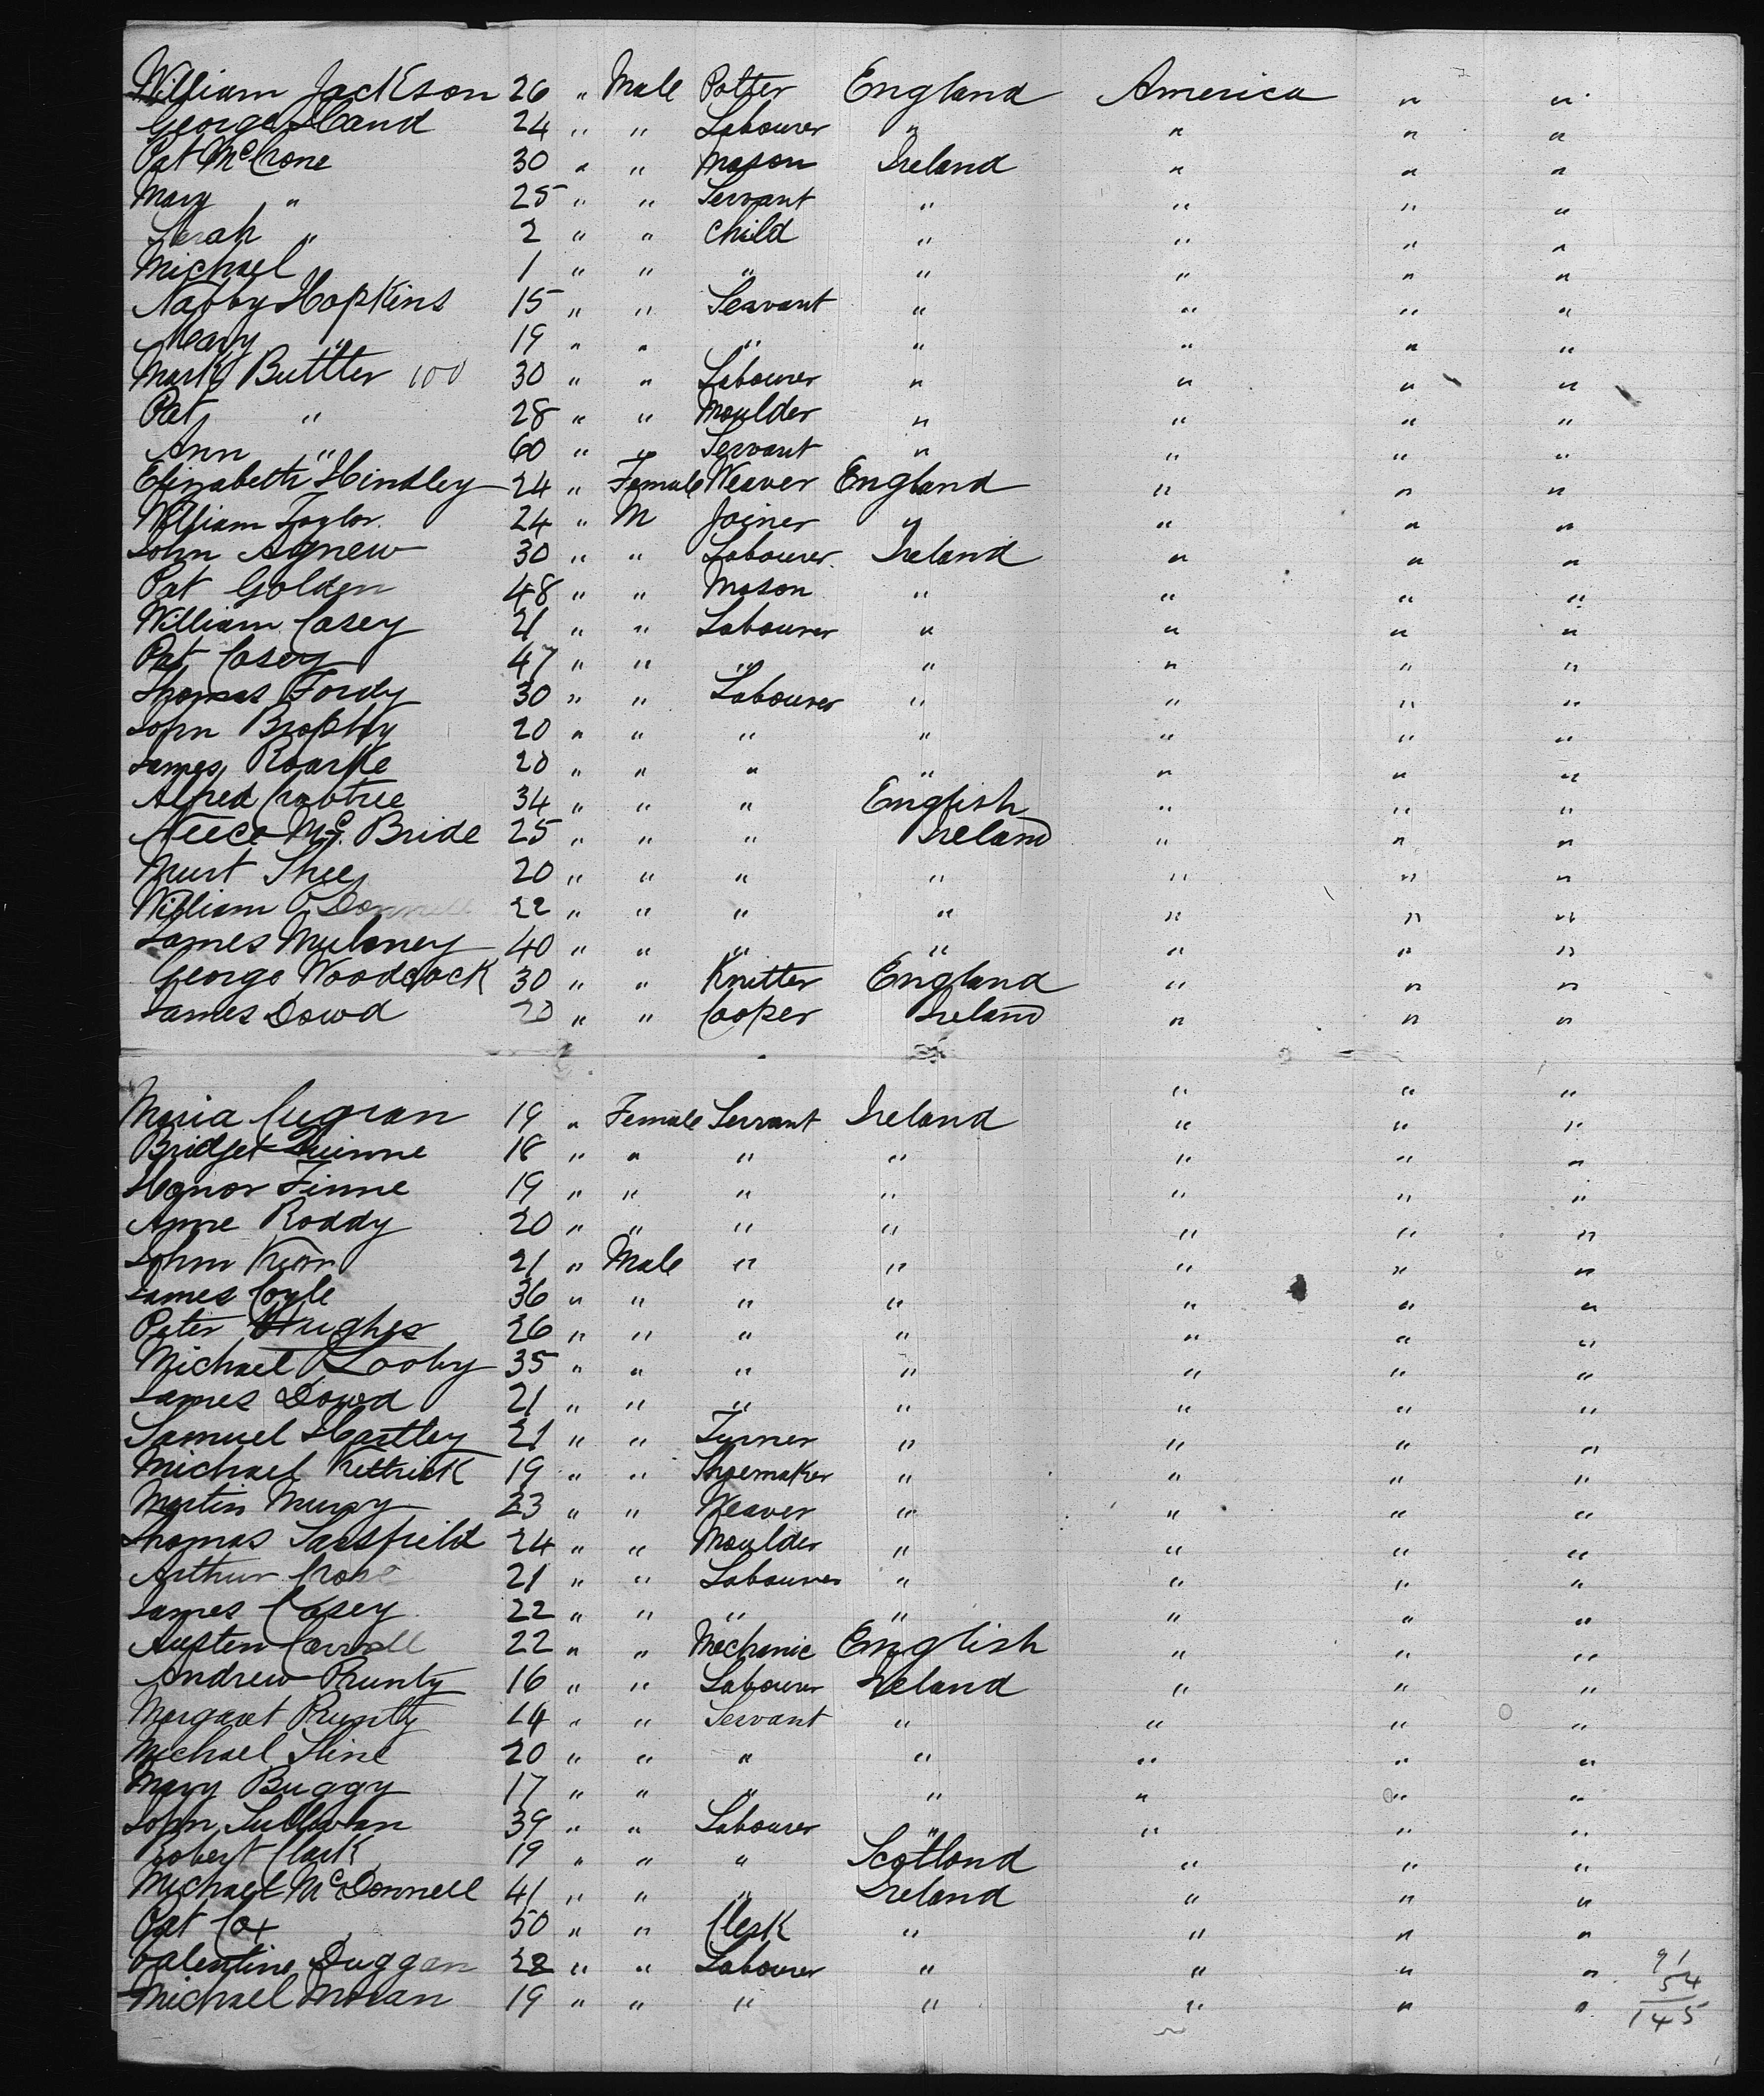 William Jackson 26 " Male Potter England America " "
George Hand 24 " " Labourer " " " "
Pat McCrone 30 " " Mason Ireland " " "
Mary " 25 " " Servant " " " "
Sarah " 2 " " Child " " " "
Michael " 1 " " " " " " "
Nabby Hopkins 15 " " Servant " " " "
Mary " 19 " " " " " " "
Mark Buttler 100 30 " " Labourer " " " "
Pat " 28 " " Moulder " " " "
Ann " 60 " " Servant " " " "
Elizabeth Hindley 24 " Female Weaver England " " "
William Taylor 24 " M Joiner " " " "
John Agnew 30 " " Labourer Ireland " " "
Pat Golden 48 " " Mason " " " "
William Casey 21 " " Labourer " " " "
Pat Casey 47 " " " " " " "
Thomas Fordy 30 " " Labourer " " " "
John Brophy 20 " " " " " " "
James Roarke 20 " " " " " " "
Alfred Crabtree 34 " " " English " " "
McBride 25 " " " Ireland " " "
Murt Shee 20 " " " " " " "
William O Donnell 22 " " " " " " "
James Mulaney 40 " " " " " " "
George Woodcock 30 " " Knitter England " " "
James Dowd 20 " " Cooper Ireland " " "
" " "
Maria 19 " Female Servant Ireland " " "
Bridget Quinne 18 " " " " " " "
Honor Finne 19 " " " " " " "
Anne Roddy 20 " " " " " " "
John 21 " Male " " " " "
James Coyle 36 " " " " " " "
Peter Hughes 26 " " " " " " "
Michael Looby 35 " " " " " " "
James Dowd 21 " " " " " " "
Samuel Hartley 21 " " Turner " " " "
Michael Kettrick 19 " " Shoemaker " " " "
Martin Murry 23 " " Weaver " " " "
Thomas Sarsfield 24 " " Moulder " " " "
Arthur 21 " " Labourer " " " "
James Casey 22 " " " " " " "
Austen Carroll 22 " " Mechanic English " " "
Andrew Prunty 16 " " Labourer Ireland " " "
Margaret Prunty 14 " " Servant " " " "
Michael 20 " " " " " " "
Mary Buggy 17 " " " " " " "
John Sullivan 39 " " Labourer " " " "
Robert Clark 19 " " " Scotland " " "
Michael McDonnell 41 " " " Ireland " " "
Pat Cox 50 " " Clerk " " " "
Valentine Duggan 28 " " Labourer " " " "
Michael Moran 19 " " " " " " "
91
54
145